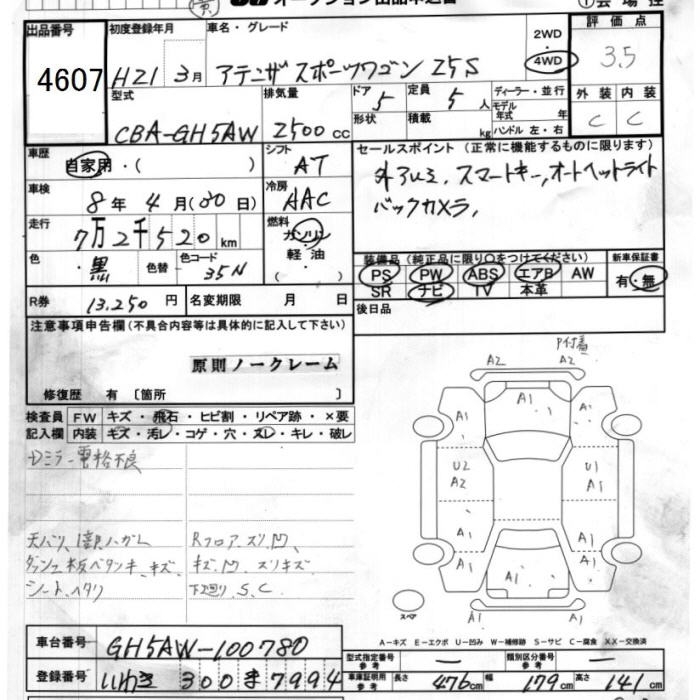 オークション出品申込書
出品番号 4607
初度登録年月 H21 3月
車名・グレード アテンザスポーツワゴン 25S
2WD
4WD
評価点 3.5
外装 C 内装 C
型式 CBA-GH5AW
排気量 2500cc
ドア 5 形状
定員 5人 積載 kg
ディーラー・並行
モデル年式 年
ハンドル 左・右
車歴 自家用・( )
シフト AT
車検 8年4月(30日)
冷房 AAC
走行 7万2千520km
燃料 ガソリン
軽・油
( )
色 黒 色替 色コード 35N
R券 13,250円 名変期限 月 日
セールスポイント(正常に機能するものに限ります)
外アルミ、スマートキー、オートヘッドライト
バックカメラ,
装備品(純正品に限り○をつけてください) 新車保証書
PS PW ABS エアB AW 有・無
SR ナビ TV 本革
後日品
注意事項申告欄(不具合内容等は具体的に記入して下さい)
原則ノークレーム
修復歴 有〔箇所 〕
検査員 FW キズ・飛石・ヒビ割・リペア跡・×要
記入欄 内装 キズ・汚レ・コゲ・穴・スレ・キレ・破レ
Dミラー電格不良
シート、ヘタリ
Rフロア、ズリ凹、
キズ、凹、ズリキズ
下廻リ、S、C
A2 A2
A1 A1 A1
A1 A1
U2 A2 U1 A1
A1 A1
A1 A1 A1
A1
スペア
A−キズ E−エクボ U−凹み W−補修跡 S−サビ C−腐食 XX−交換済
車台番号 GH5AW-100780
登録番号 いわき 300 ま 7994
型式指定番号 参考 — 類別区分番号 参考 —
車庫証明用 参考 長さ 476cm 幅 179cm 高さ 141cm